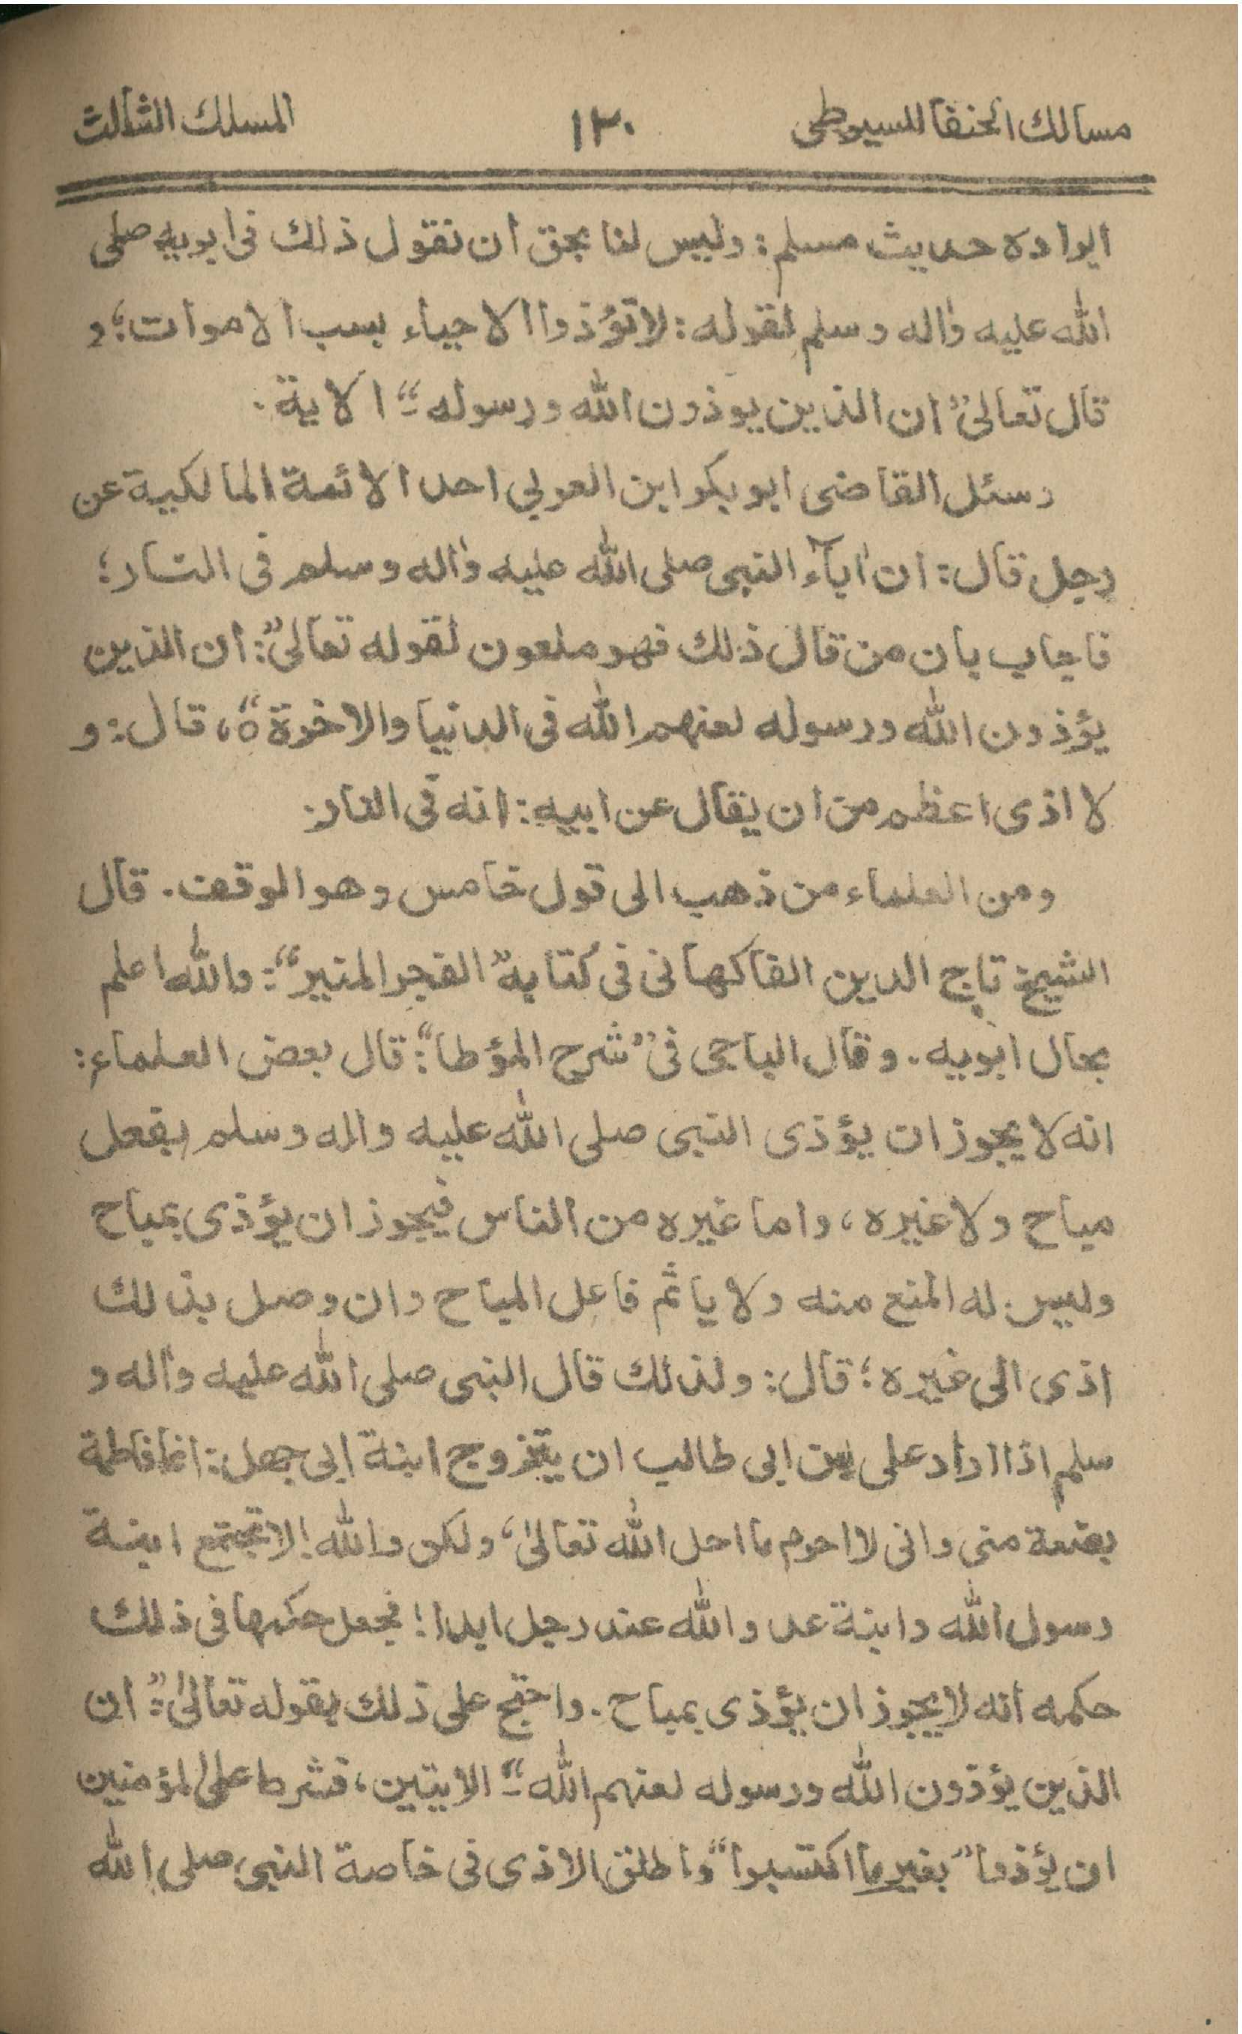 مسالك الحنفا للسيوطى ١٣٠ المسلك الثالث
ايراده حديث مسلم: وليس لنا بحق ان نقول ذلك فى ابويه صلى
الله عليه واله وسلم لقوله: لا تؤذوا الاحياء بسب الاموات؛ و
قال تعالى "ان الذين يوذون الله ورسوله" الاية.
وسئل القاضى ابو بكر ابن العربي احد الائمة المالكية عن
رجل قال: ان اباء النبى صلى الله عليه واله وسلم فى النار؛
فاجاب بان من قال ذلك فهو ملعون لقوله تعالى": ان الذين
يؤذون الله ورسوله لعنهم الله فى الدنيا والاخرة ٥"، قال: و
لا اذى اعظم من ان يقال عن ابيه: انه فى النار.
ومن العلماء من ذهب الى قول خامس وهو الوقف. قال
الشيخ تاج الدين الفاكهانى فى كتابه "الفجر المنير": والله اعلم
بحال ابويه. وقال الباجى فى "شرح المؤطا": قال بعض العلماء:
انه لا يجوز ان يؤذى النبى صلى الله عليه واله وسلم بفعل
مباح ولا غيره، واما غيره من الناس فيجوز ان يؤذى بمباح
وليس له المنع منه ولا ياثم فاعل المباح وان وصل بذلك
اذى الى غيره؛ قال: ولذلك قال النبى صلى الله عليه واله و
سلم اذا اراد على بن ابى طالب ان يتزوج ابنة ابى جهل: انما فاطمة
بضعة منى وانى لا احرم ما احل الله تعالى، ولكن والله! لا تجتمع ابنة
رسول الله وابنة عدو الله عند رجل ابدا؛ فجعل حكمها فى ذلك
حكمه انه لا يجوز ان يؤذى بمباح. واحتج على ذلك بقوله تعالى": ان
الذين يؤذون الله ورسوله لعنهم الله" الايتين، فشرط على المؤمنين
ان يؤذوا "بغير ما اكتسبوا" واطلق الاذى فى خاصة النبى صلى الله